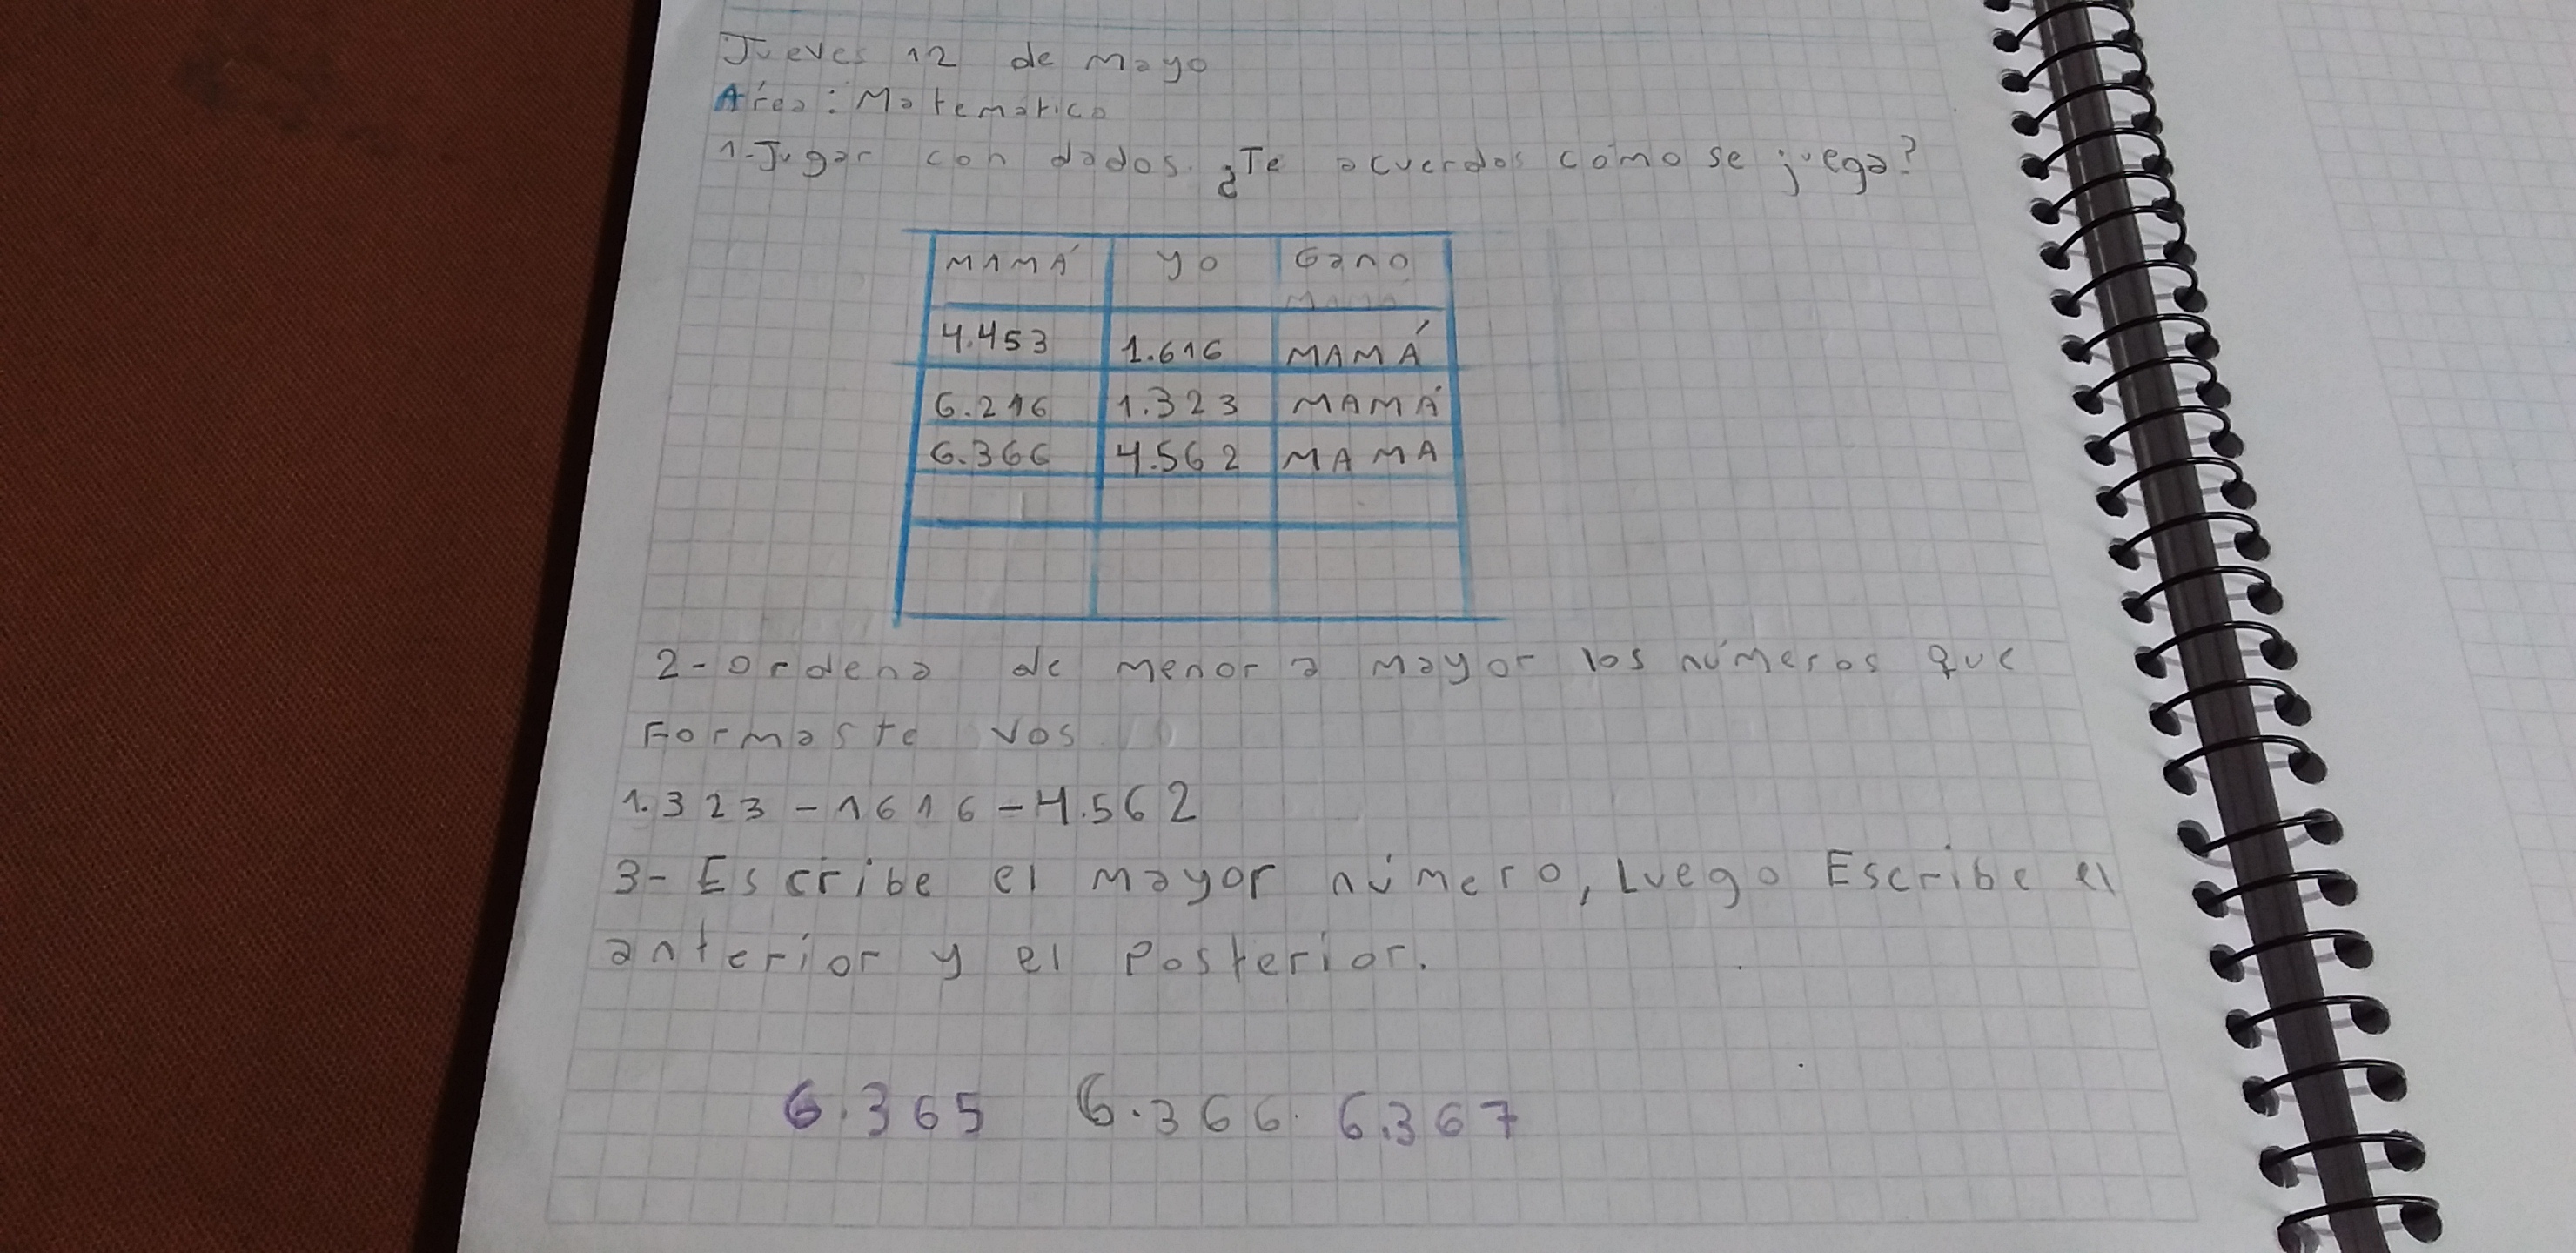 Jueves 12 de mayo
Área: Matemática
1-Jugar con dados. ¿Te acuerdas cómo se juega?
MAMÁ yo Gano
MAMÁ
4.453 1.616 MAMÁ
6.216 1.323 MAMÁ
6.366 4.562 MAMA
2-ordena de menor a mayor los números que
Formaste vos
1.323-1616-4.562
3-Escribe el mayor número, luego Escribe el
anterior y el Posterior.
6.365 6.366. 6.367